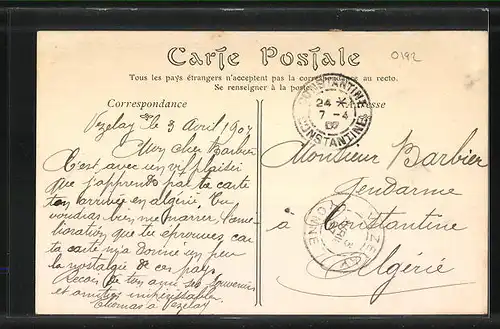 Carte Postale
0192
Tous les pays étrangers n'acceptent pas la correspondance au recto.
Se renseigner à la poste
Correspondance
Adresse
CONSTANTINE
24
7 - 4
07
CONSTANTINE
Vezelay le 3 Avril 1907
Mon cher Barbier
C'est avec un vif plaisir
que j'apprends par ta carte
ton arrivée en algérie. Tu
voudras bien me narrer l'amé
lioration que tu éprouves car
ta carte m'a donné un peu
la nostalgie de ces pays
Recois de ton ami ses souvenirs
et amitiés
Thomas à Vezelay
Monsieur Barbier
Gendarme
à Constantine
Algérie
VEZELAY
YONNE